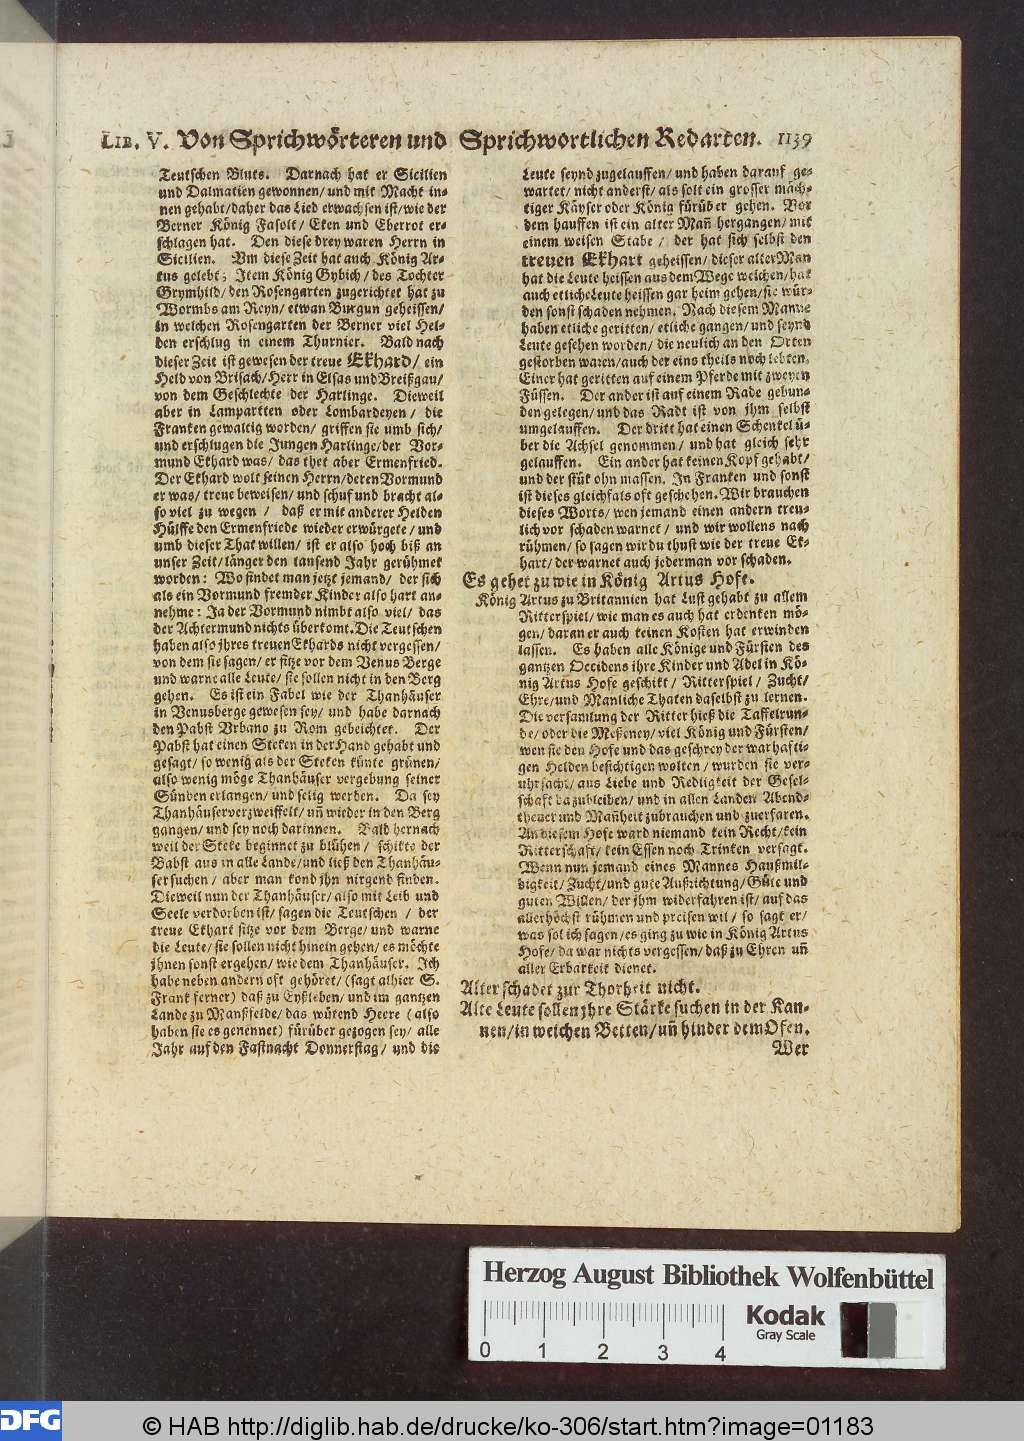 LIB. V. Von Sprichwörteren und Sprichwortlichen Redarten. 1139
Teutschen Bluts. Darnach hat er Sicilien
und Dalmatien gewonnen/ und mit Macht in-
nen gehabt/ daher das Lied erwachsen ist/ wie der
Berner König Fasolt/ Eken und Eberrot er-
schlagen hat. Den diese drey waren Herrn in
Sicilien. Um diese Zeit hat auch König Ar-
tus gelebt; Item König Gybich/ des Tochter
Grymhild/ den Rosengarten zugerichtet hat zu
Wormbs am Reyn/ etwan Burgun geheissen/
in welchen Rosengarten der Berner viel Hel-
den erschlug in einem Thurnier. Bald nach
dieser Zeit ist gewesen der treue Ekhard/ ein
Held von Brisach/ Herr in Elsas und Breißgau/
von dem Geschlechte der Harlinge. Dieweil
aber in Lampartten oder Lombardeyen/ die
Franken gewaltig worden/ griffen sie umb sich/
und erschlugen die Jungen Harlinge/ der Vor-
mund Ekhard was/ das thet aber Ermenfried.
Der Ekhard wolt seinen Herrn/ deren Vormund
er was/ treue beweisen/ und schuf und bracht al-
so viel zu wegen / daß er mit anderer Helden
Hülffe den Ermenfriede wieder erwürgete/ und
umb dieser That willen/ ist er also hoch biß an
unser Zeit/ länger den tausend Jahr gerühmet
worden: Wo findet man jetzt jemand/ der sich
als ein Vormund fremder Kinder also hart an-
nehme: Ja der Vormund nimbt also viel/ das
der Achtermund nichts überkomt. Die Teutschen
haben also jhres treuen Ekhards nicht vergessen/
von dem sie sagen/ er sitze vor dem Venus Berge
und warne alle Leute/ sie sollen nicht in den Berg
gehen. Es ist ein Fabel wie der Thanhäuser
in Venusberge gewesen sey/ und habe darnach
den Pabst Urbano zu Rom gebeichtet. Der
Pabst hat einen Steken in der Hand gehabt und
gesagt/ so wenig als der Steken künte grünen/
also wenig möge Thanhäuser vergebung seiner
Sünden erlangen/ und selig werden. Da sey
Thanhäuser verzweiffelt/ uñ wieder in den Berg
gangen/ und sey noch darinnen. Bald hernach
weil der Steke beginnet zu blühen/ schikte der
Babst aus in alle Lande/ und ließ den Thanhäu-
ser suchen/ aber man kond jhn nirgend finden.
Dieweil nun der Thanhäuser/ also mit Leib und
Seele verdorben ist/ sagen die Teutschen / der
treue Ekhart sitze vor dem Berge/ und warne
die Leute/ sie sollen nicht hinein gehen/ es möchte
jhnen sonst ergehen/ wie dem Thanhäuser. Ich
habe neben andern oft gehöret/ (sagt alhier S.
Frank ferner) daß zu Eyßleben/ und im gantzen
Lande zu Manßfelde/ das wütend Heere (also
haben sie es genennet) fürüber gezogen sey/ alle
Jahr auf den Fastnacht Donnerstag/ und die
Leute seynd zugelauffen/ und haben darauf ge-
wartet/ nicht anderst/ als solt ein grosser mäch-
tiger Käyser oder König fürüber gehen. Vor
dem hauffen ist ein alter Mañ hergangen/ mit
einem weisen Stabe / der hat sich selbst den
treuen Ekhart geheissen/ dieser alter Man
hat die Leute heissen aus dem Wege weichen/ hat
auch etliche Leute heissen gar heim gehen/ sie wür-
den sonst schaden nehmen. Nach diesem Manne
haben etliche geritten/ etliche gangen/ und seynd
Leute gesehen worden/ die neulich an den Orten
gestorben waren/ auch der eins theils noch lebten.
Einer hat geritten auf einem Pferde mit zweyen
Füssen. Der ander ist auf einem Rade gebun-
den gelegen/ und das Radt ist von jhm selbst
umgelauffen. Der dritt hat einen Schenkel ü-
ber die Achsel genommen/ und hat gleich sehr
gelauffen. Ein ander hat keinen Kopf gehabt/
und der stük ohn massen. In Franken und sonst
ist dieses gleichfals oft geschehen. Wir brauchen
dieses Worts/ wen jemand einen andern treu-
lich vor schaden warnet/ und wir wollens nach
rühmen/ so sagen wir du thust wie der treue Ek-
hart/ der warnet auch jederman vor schaden.
Es gehet zu wie in König Artus Hofe.
König Artus zu Britannien hat Lust gehabt zu allem
Ritterspiel/ wie man es auch hat erdenken mö-
gen/ daran er auch keinen Kosten hat erwinden
lassen. Es haben alle Könige und Fürsten des
gantzen Occidens ihre Kinder und Adel in Kö-
nig Artus Hofe geschikt/ Ritterspiel/ Zucht/
Ehre/ und Manliche Thaten daselbst zu lernen.
Die versamlung der Ritter hieß die Taffelrun-
de/ oder die Meßeney/ viel König und Fürsten/
wen sie den Hofe und das geschrey der warhafti-
gen Helden besichtigen wolten/ wurden sie ver-
uhrsacht/ aus Liebe und Redligkeit der Gesel-
schaft da zubleiben/ und in allen Landen Abend-
theuer und Mañheit zubrauchen und zuerfaren.
An diesem Hofe ward niemand kein Recht/ kein
Ritterschaft/ kein Essen noch Trinken versagt.
Wenn nun jemand eines Mannes Haußmil-
digkeit/ Zucht/ und gute Außrichtung/ Güte und
guten Willen/ der jhm widerfahren ist/ auf das
allerhöchst rühmen und preisen wil/ so sagt er/
was sol ich sagen/ es ging zu wie in König Artus
Hofe/ da war nichts vergessen/ daß zu Ehren uñ
aller Erbarkeit dienet.
Alter schadet zur Thorheit nicht.
Alte Leute sollen jhre Stärke suchen in der Kan-
nen/ in weichen Betten/ uñ hinder dem Ofen.
Wer
Herzog August Bibliothek Wolfenbüttel
Kodak
Gray Scale
0 1 2 3 4
DFG
© HAB http://diglib.hab.de/drucke/ko-306/start.htm?image=01183